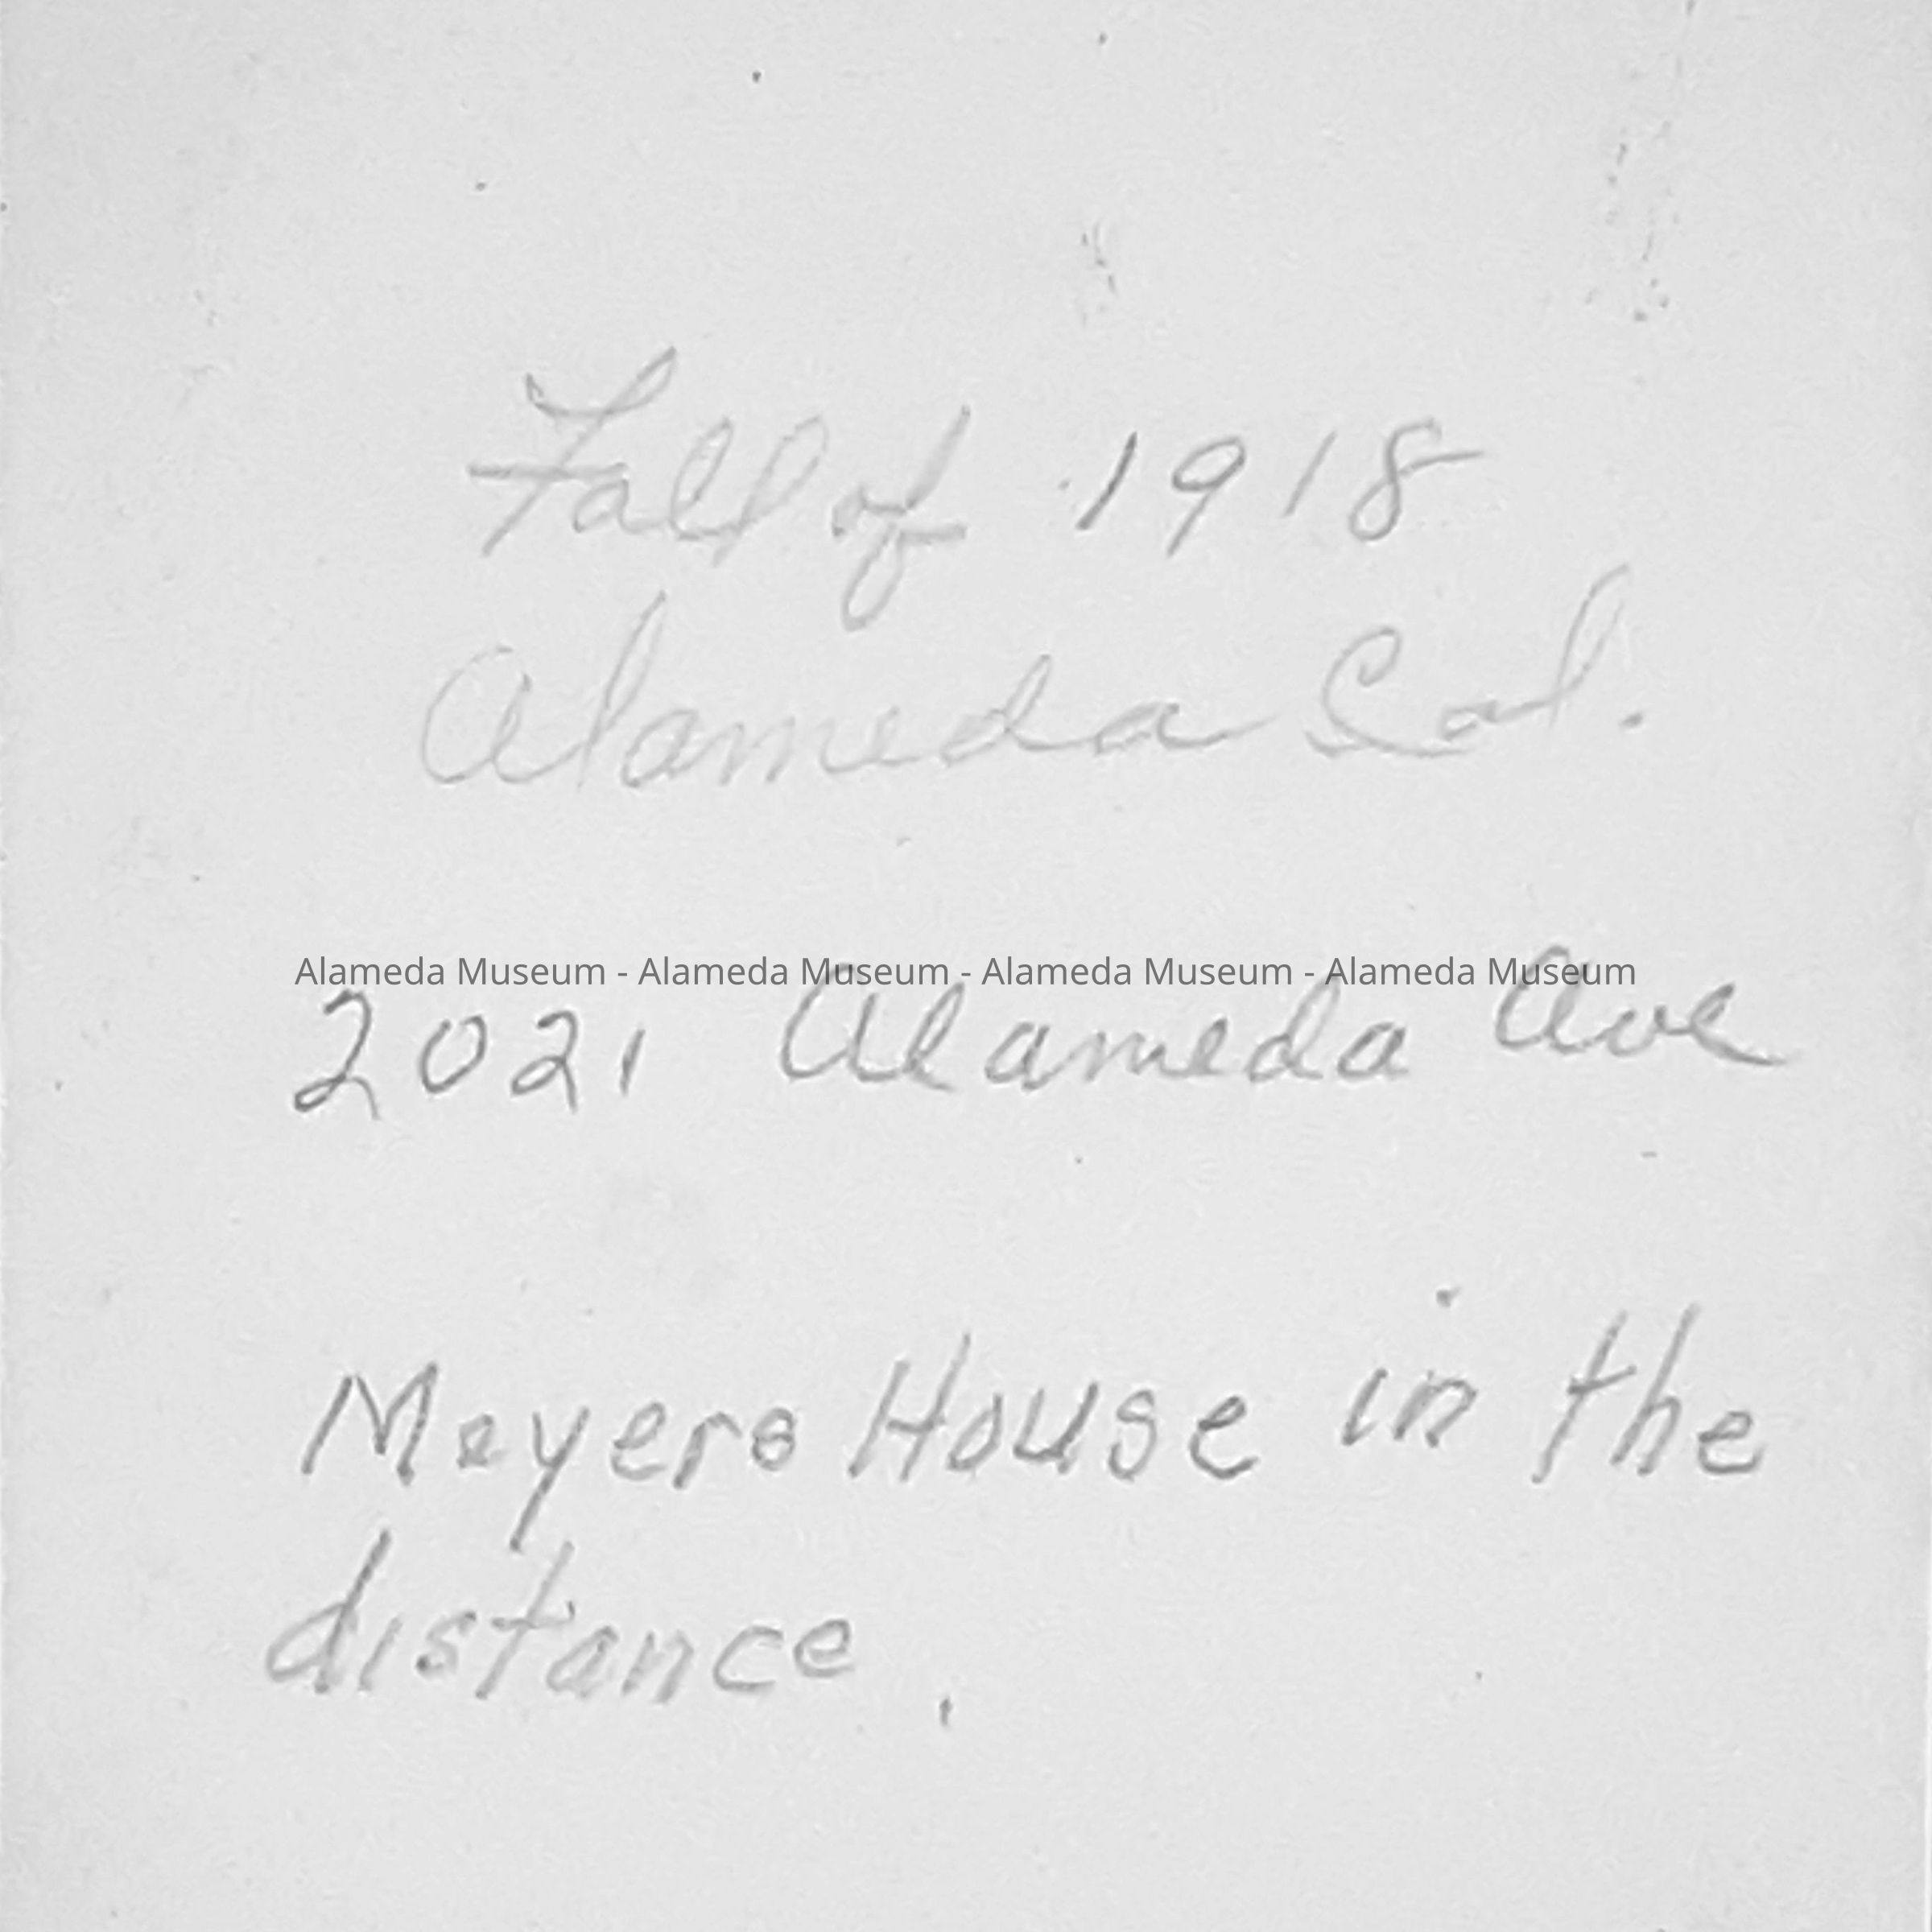 Fall of 1918
Alameda Cal.
Alameda Museum - Alameda Museum - Alameda Museum - Alameda Museum
2021 Alameda Ave
Meyers House in the
distance.